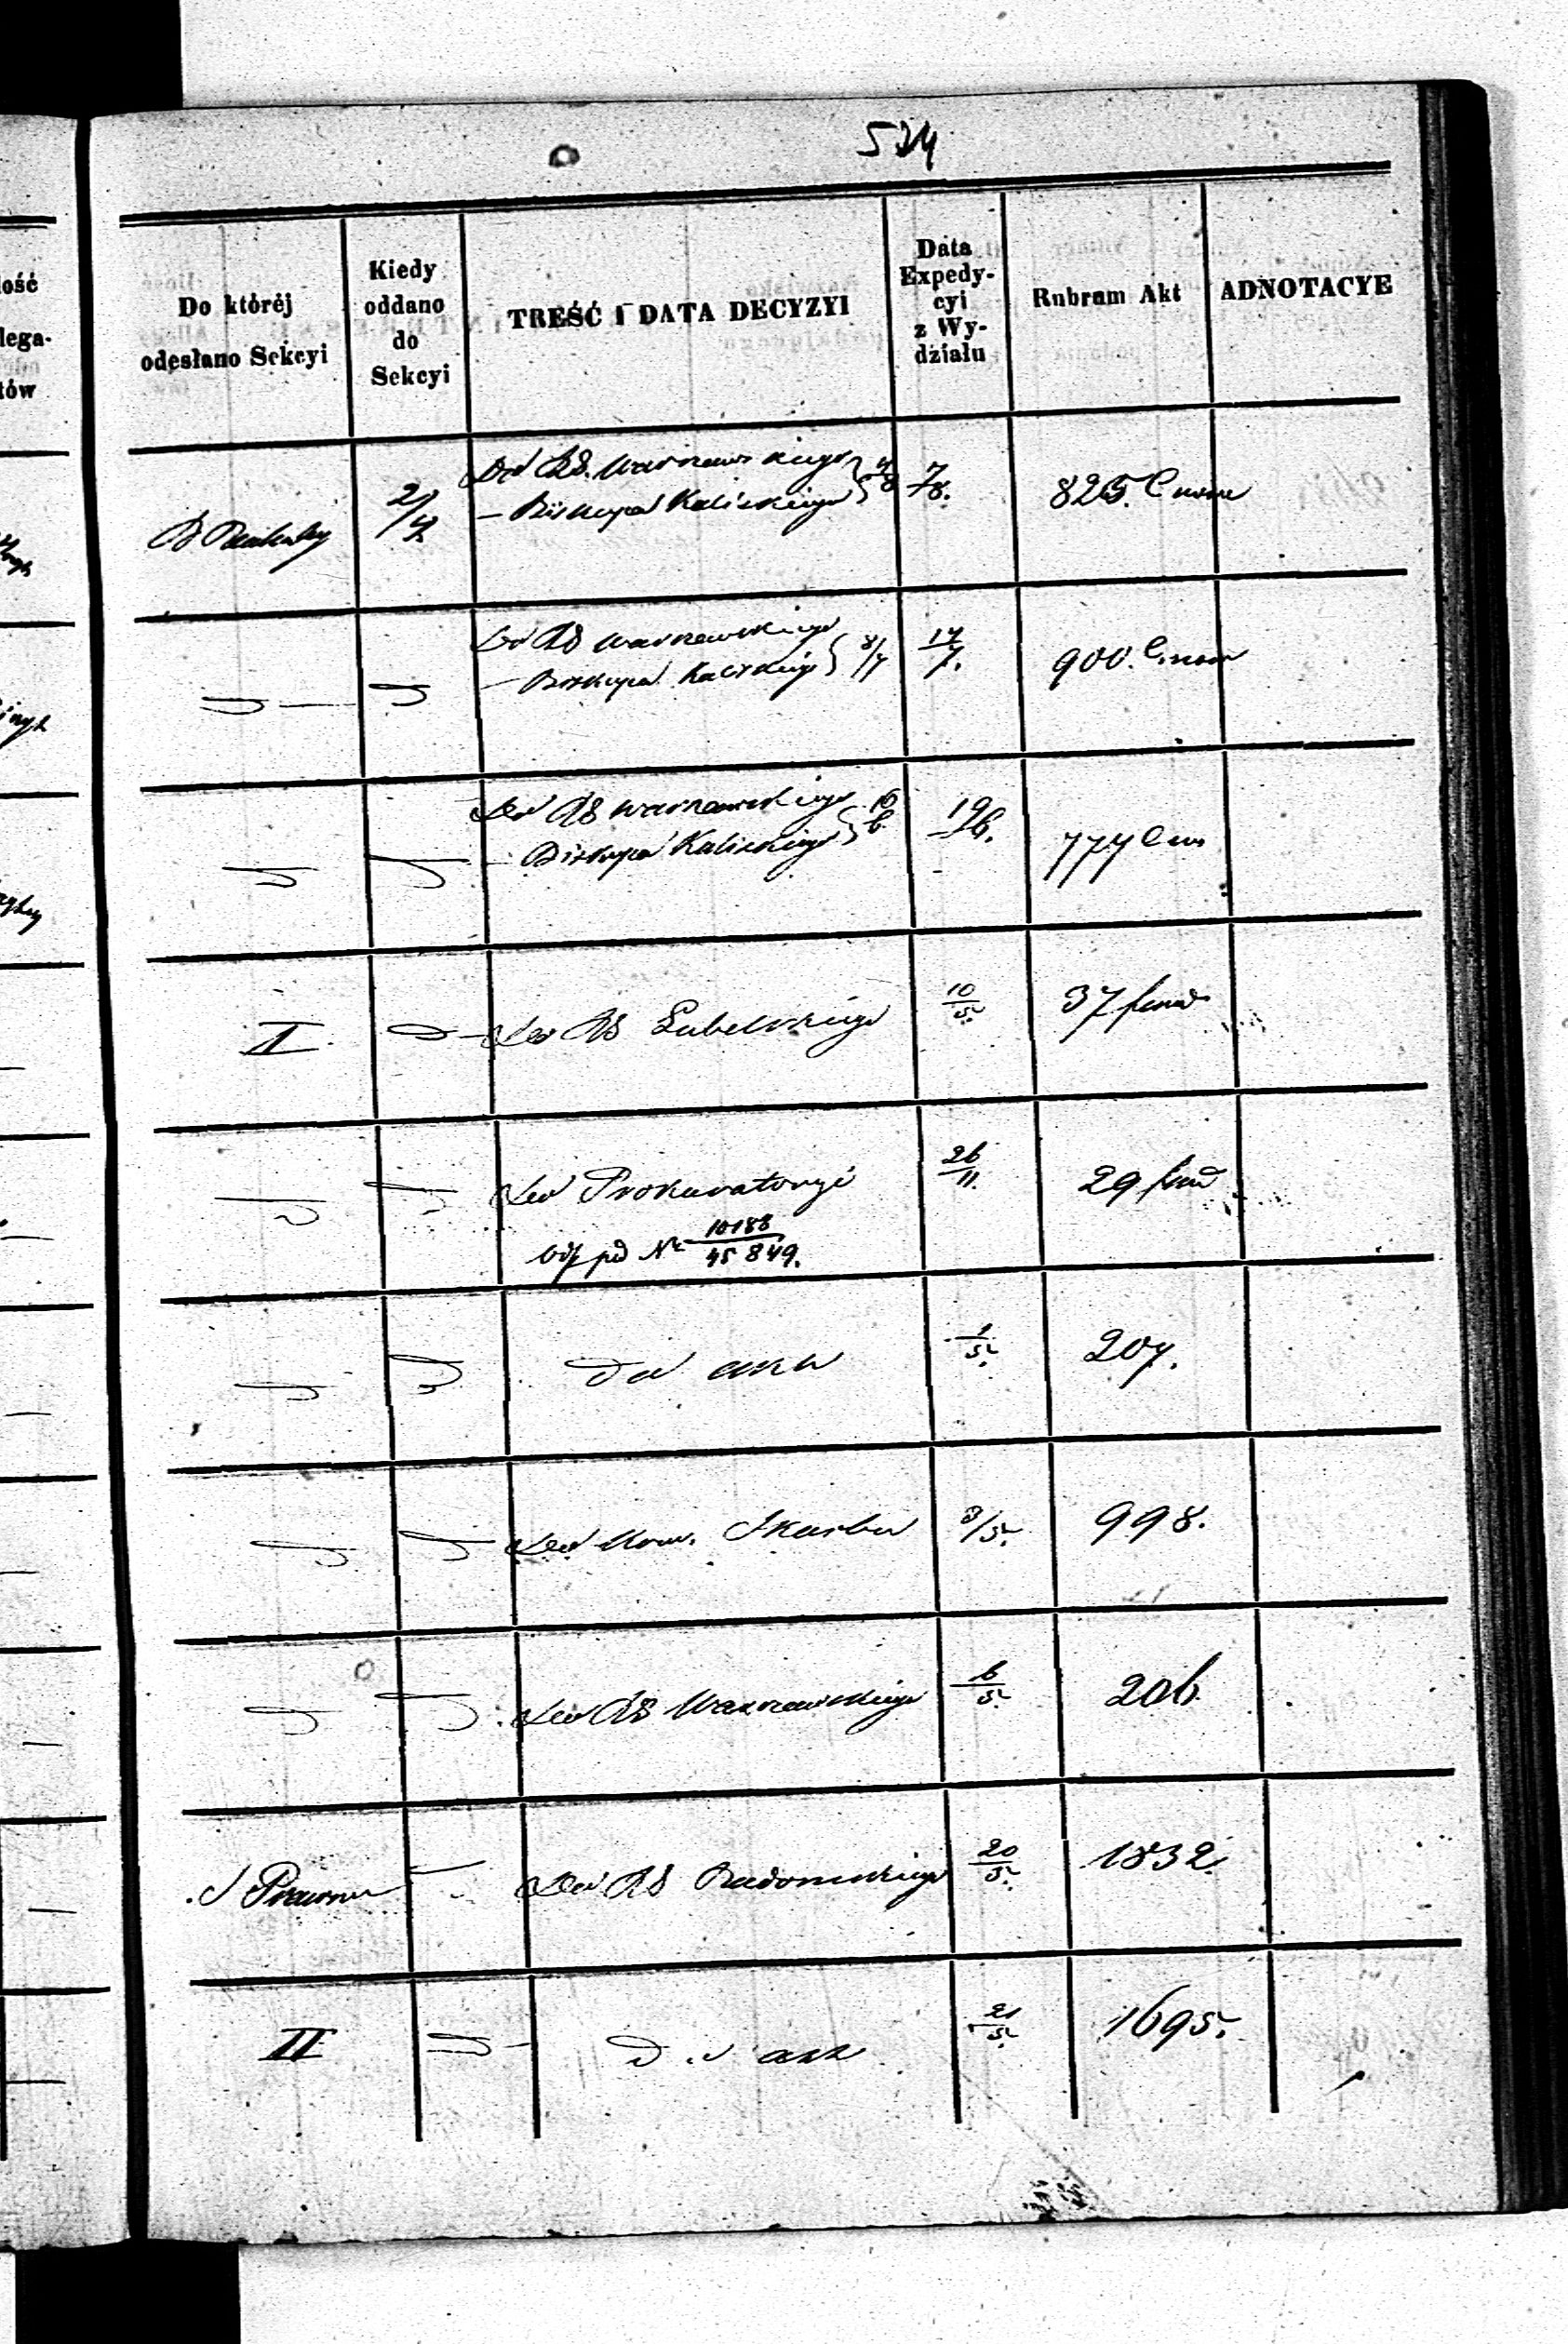 534
Do któréj
odesłano Sekcyi
Kiedy
oddano
do
Sekcyi
TREŚĆ I DATA DECYZYI
Data
Expedy-
cyi
z Wy-
działu
Rubrum Akt
ADNOTACYE
2/4
Do RG. Warszawskiego
— Biskupa Kaliskiego
7/8.
825.
Do RG Warszawskiego
— Biskupa Kaliskiego 8/7
17/7.
900.
Do RG Warszawskiego
— Biskupa Kaliskiego 16/6
19/6.
774
I
Do RG Lubelskiego
10/5.
37 fund
Do Prokuratoryi
26/11.
29 fund
Wyż pod Nr 10188/45849.
Do akt
1/5.
207.
Do Kom. Skarbu
3/5.
998.
Do RG Warszawskiego
6/5.
206.
S Prawna
Do RG Radomskiego
20/5.
1832.
II
Do akt
21/5.
1695.
ość
lega-
tów